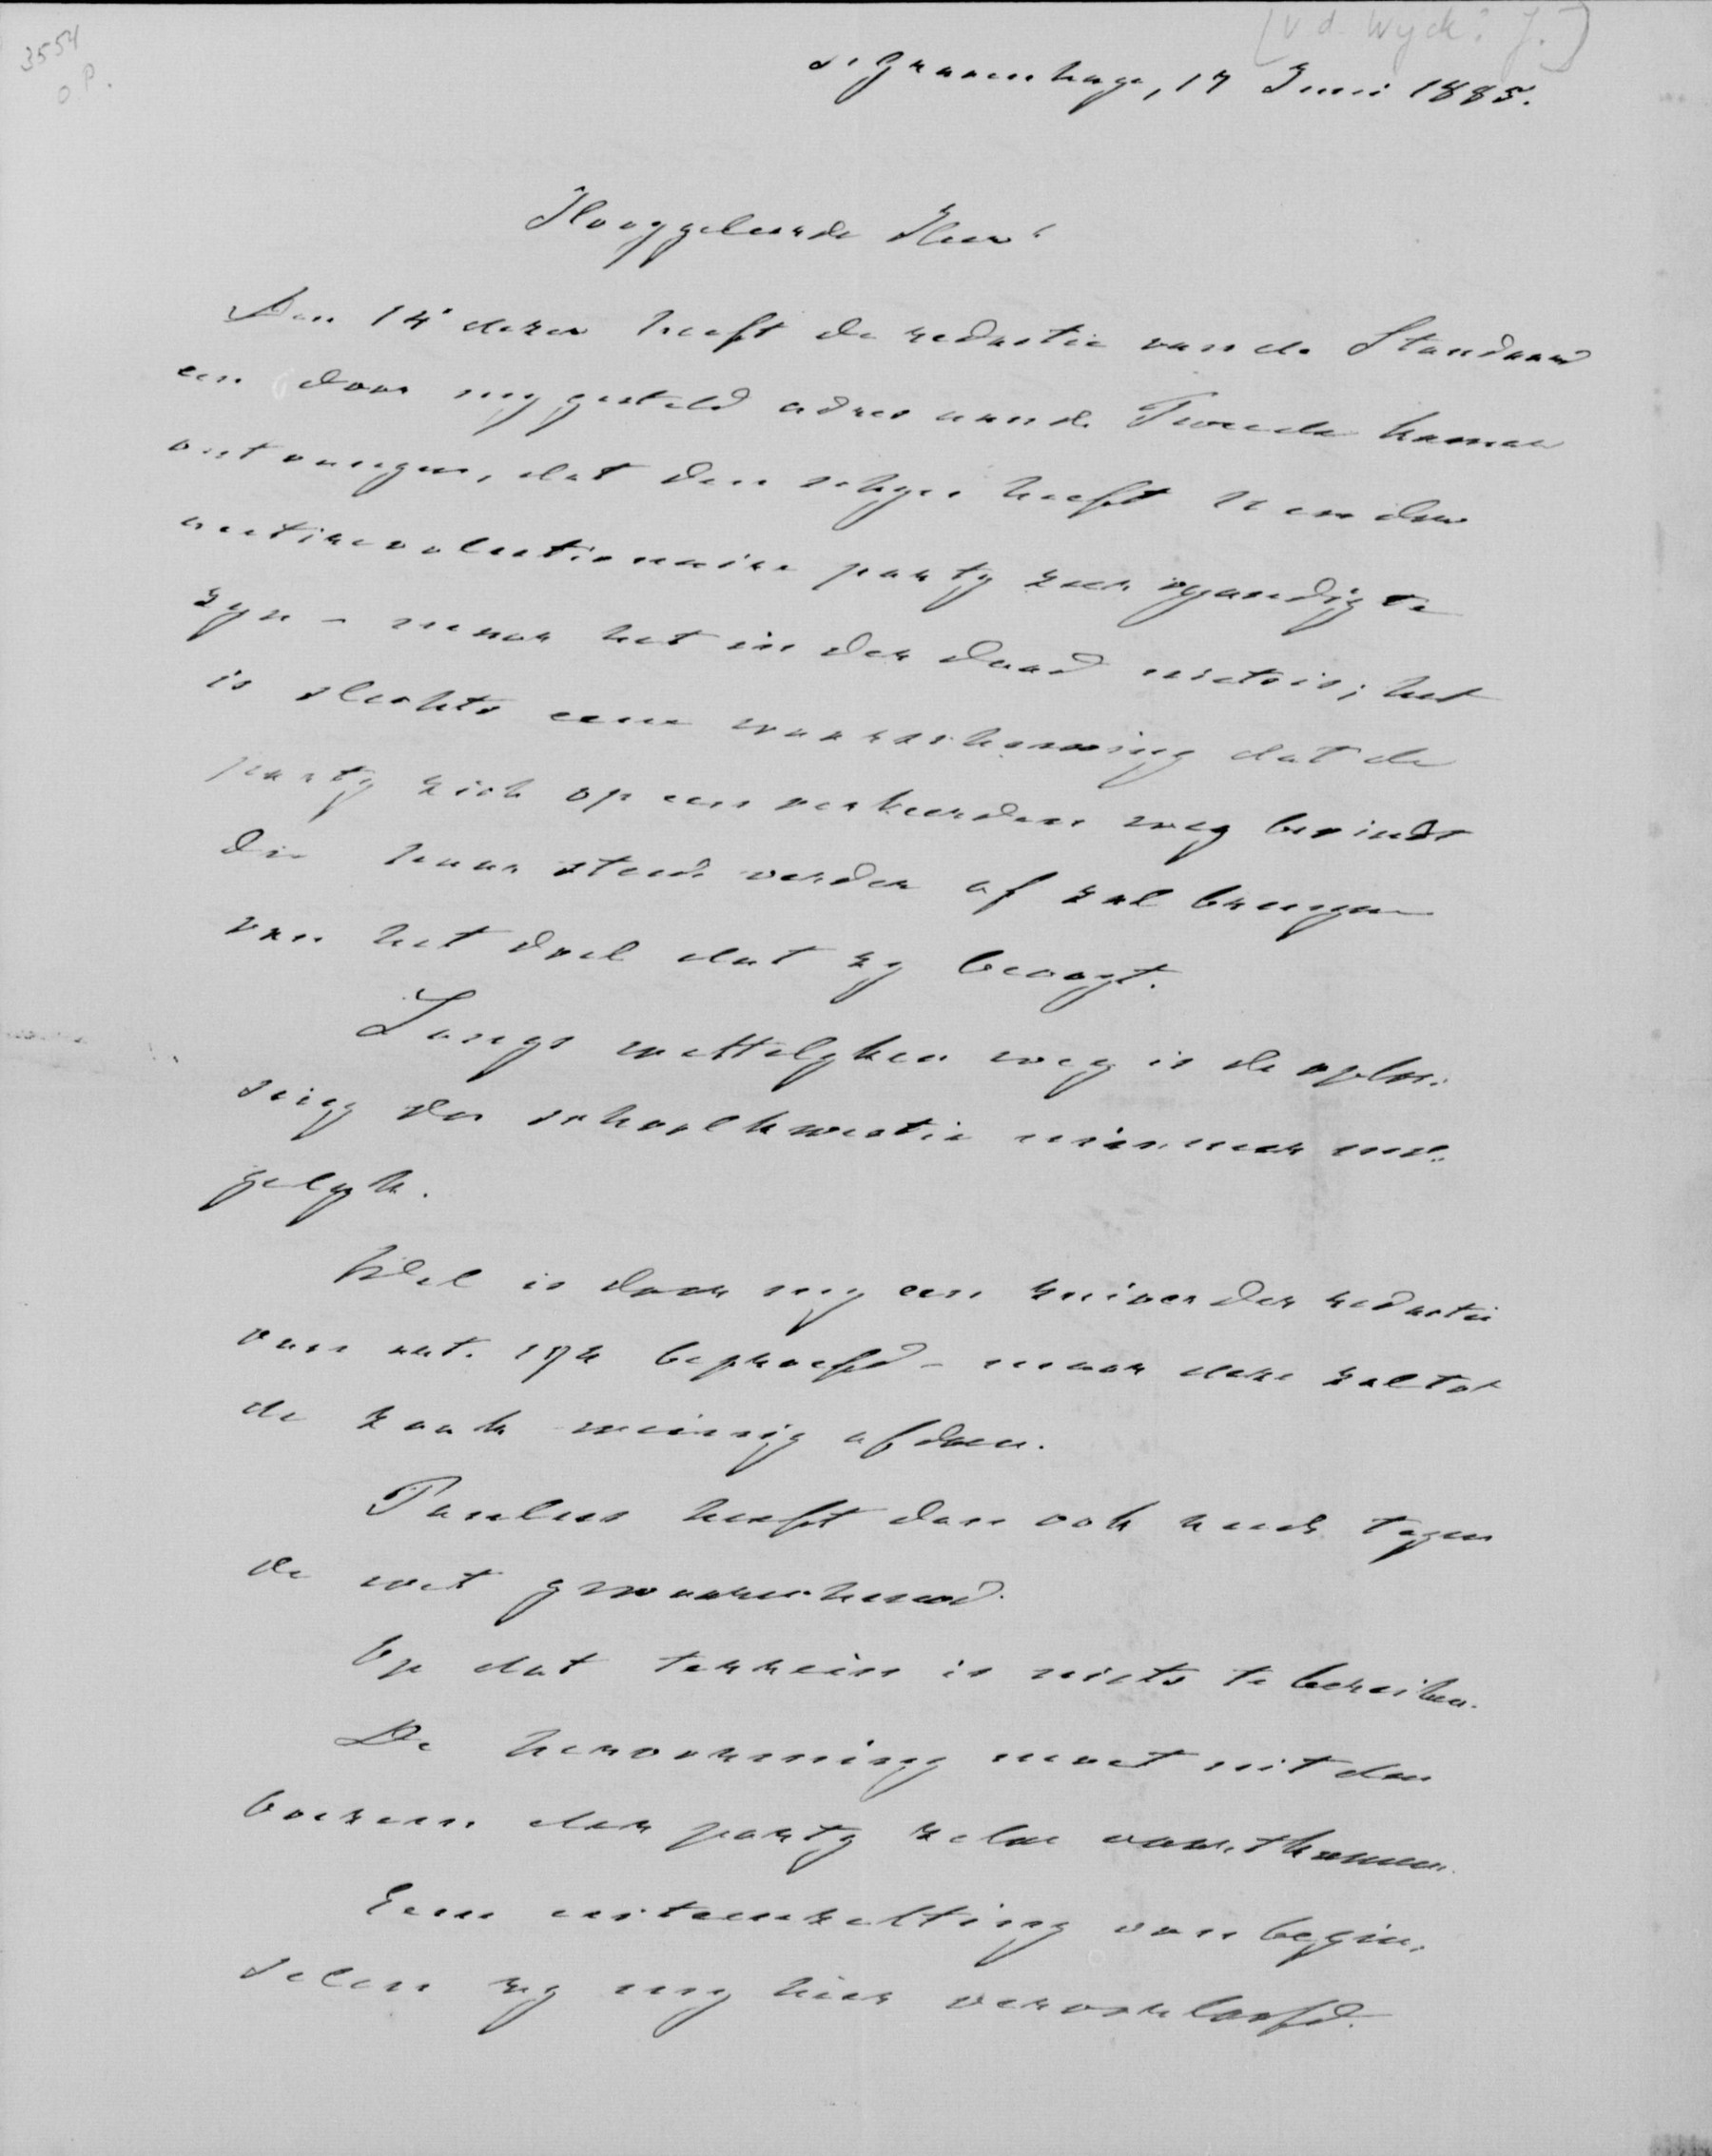 3554
o P.
[v d. Wyck. J.]
s Gravenhage, 17 Juni 1885.
Hooggeleerde Heer
Den 14 dezer heeft de redactie van de Standaard
een door my gesteld adres aan de Tweede Kamer
ontvangen, dat den schyn heeft van der
antirevolutionaire party zeer vyandig te
zyn – maar het in der daad niet is; het
is slechts eene waarschuwing dat de
party zich op een verkeerden weg bevindt
die haar steeds verder af zal brengen
van het doel dat zy beoogt.
Langs wettelyken weg is de oplos-
sing der schoolkwestie nimmer mo-
gelyk.
Wel is door my een zuiverder redactie
van art. 194 beproefd – maar deze zal tot
de zaak weinig afdoen.
Paulus heeft dan ook reeds tegen
de wet gewaarschuwd.
Op dat terrein is niets te bereiken.
De hervorming moet uit den
boezem der party zelve voortkomen.
Eene uiteenzetting van begin-
selen zy my hier veroorloofd.